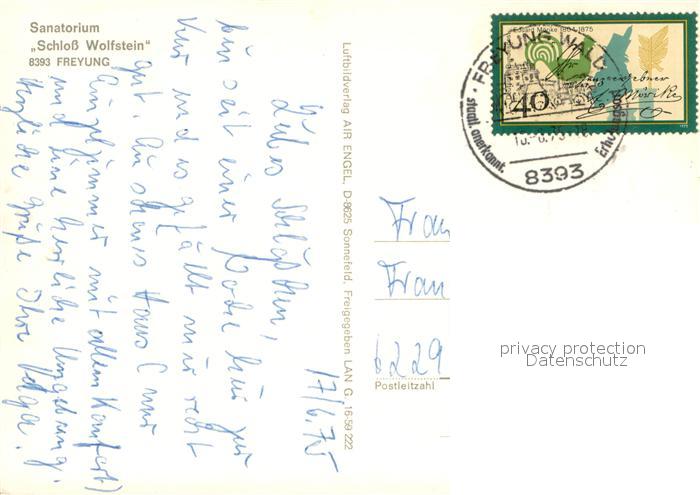 Sanatorium
„Schloß Wolfstein"
8393 FREYUNG
17/6.75
Liebes
bin seit einer Woche hier zur
Kur und es gefällt mir recht
gut. Ein schönes Haus (nur
Einzelzimmer mit allem Komfort)
und eine herrliche Umgebung.
Herzliche Grüße Ihre Helga.
Luftbildverlag AIR ENGEL, D-8625 Sonnefeld, Freigegeben LAN G. 16-59 222
Eduard Mörike 1804-1875
40
FREYUNG WALD
staatl. anerkannt.
8393
Frau
Frau
6229
Postleitzahl
privacy protection
Datenschutz